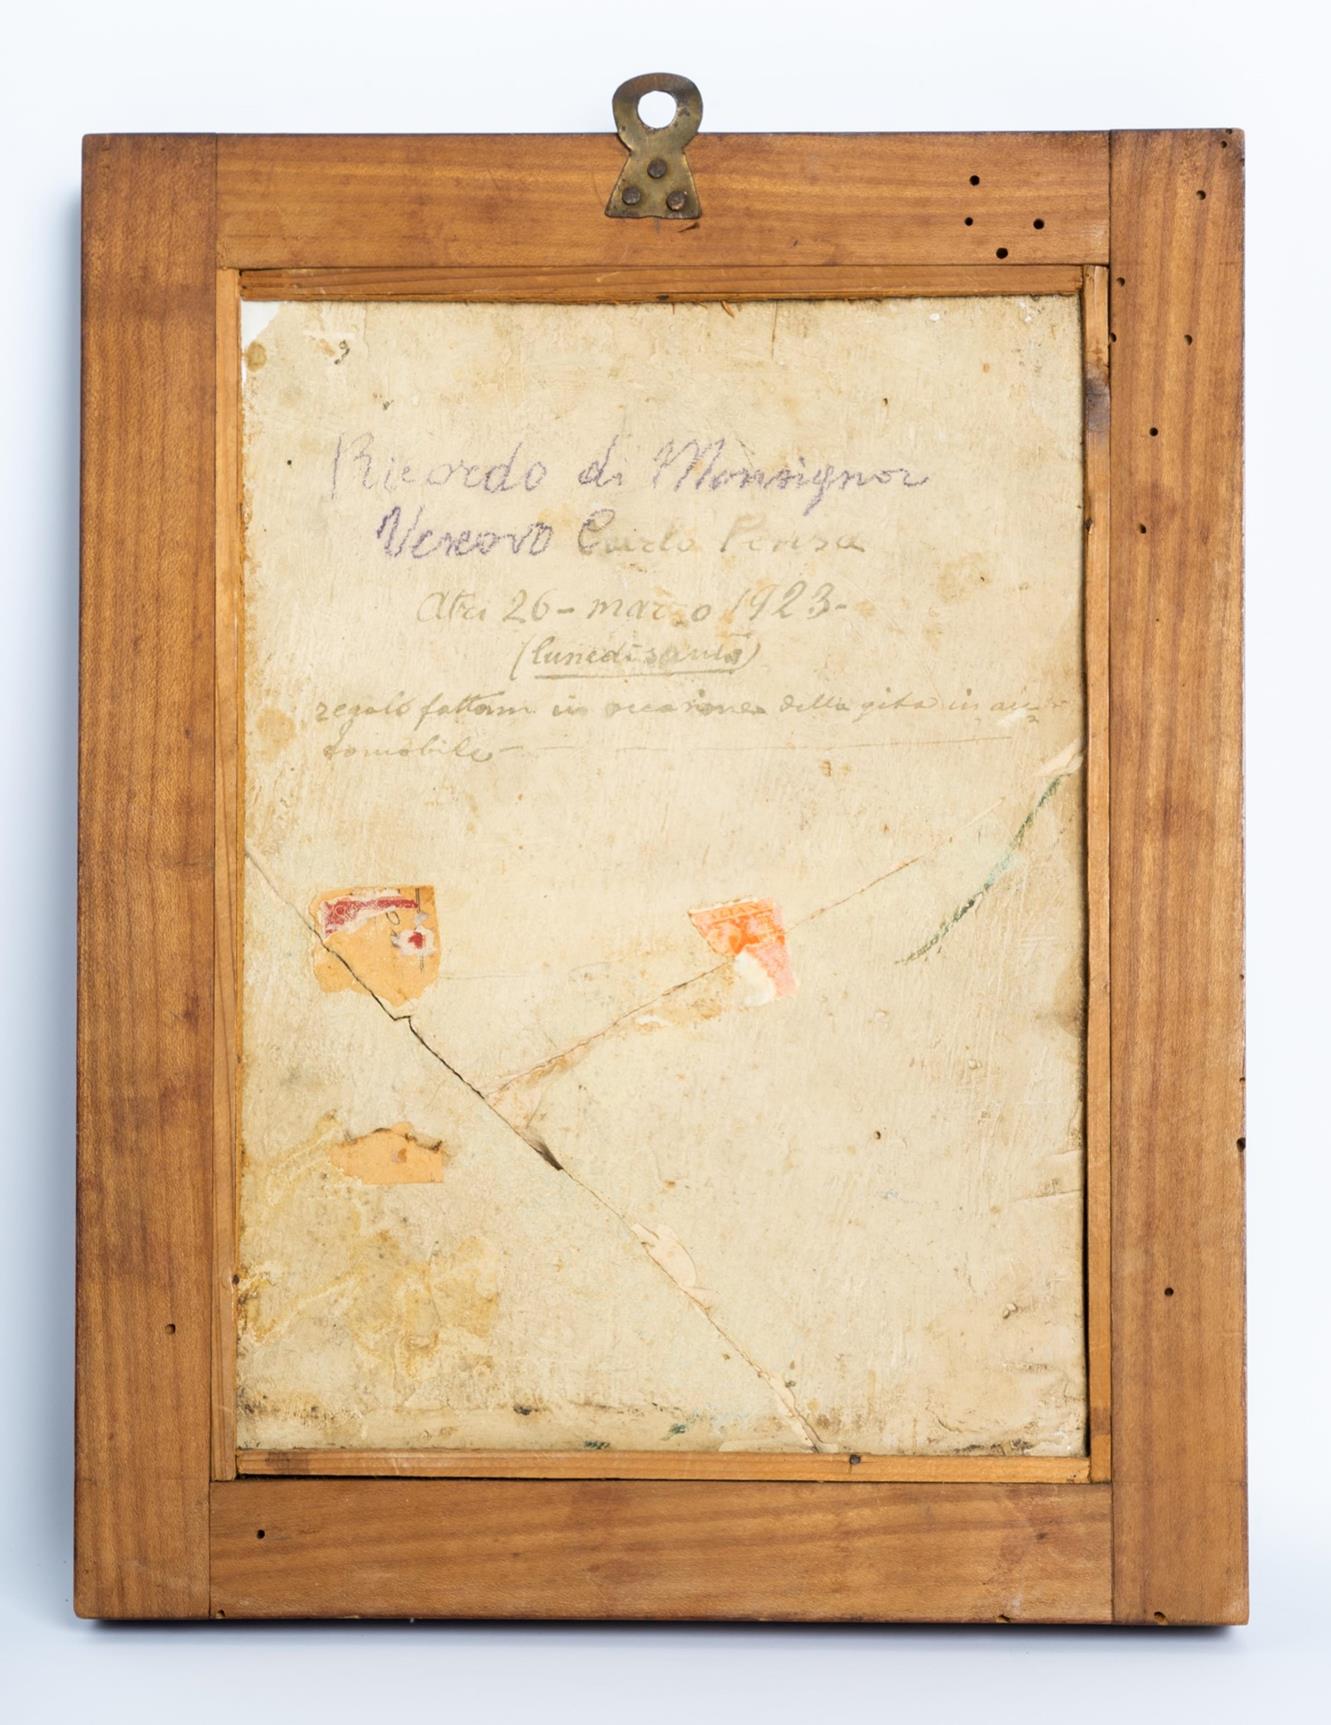 Ricordo di Monsignor
Vescovo Carlo Pensa
Atri 26 - marzo 1923 -
(lunedi santo)
regalo fattomi in occasione della gita in au=
tomobile -